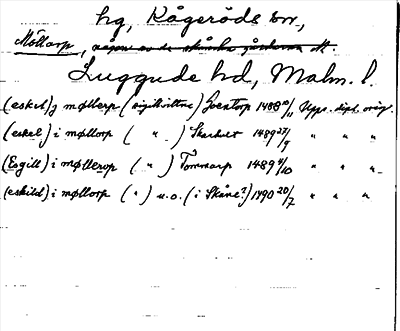 hg, Kågeröds sn,
Möllarp,
Luggude hd, Malm. l.
(eskel) j møllerp (sigillvittne) Sventorp 1488 10/11 Upps. dipl. orig.
(eskel) i møllorp ( " ) Skarhult 1489 27/9 " " "
(Esgill) i møllerop ( " ) Tommarp 1489 4/10 " " "
(eskild) i møllorp ( " ) u.o. (i Skåne?) 1490 20/7 " " "